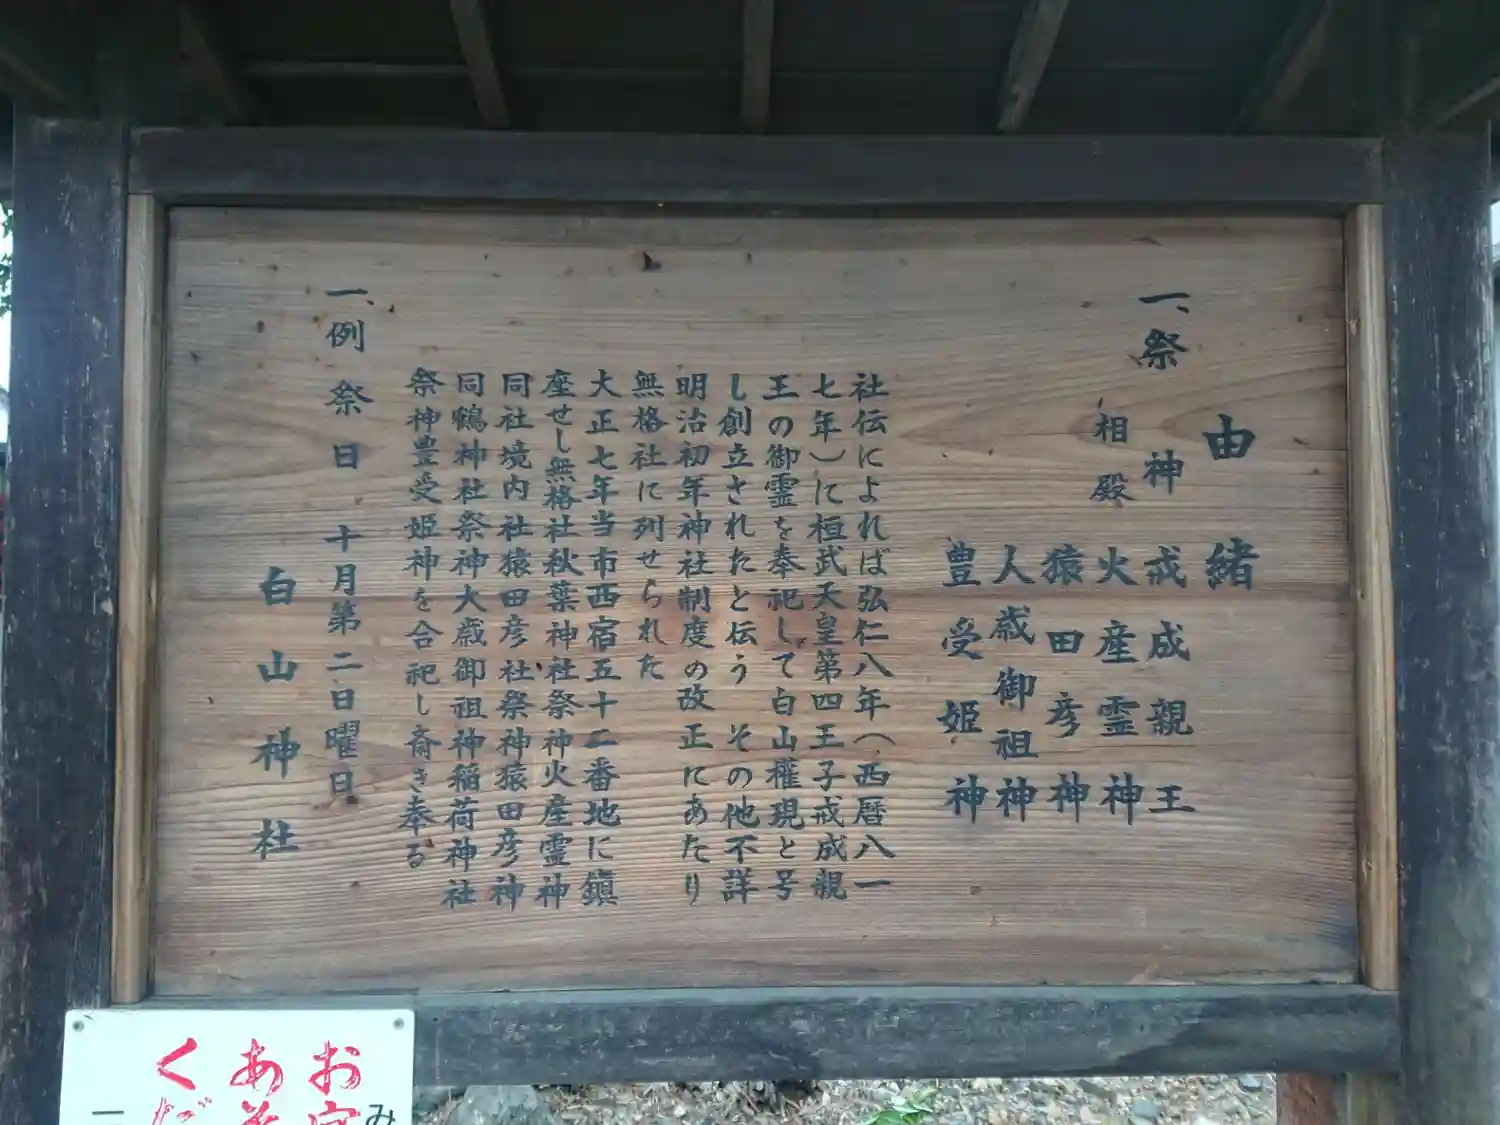 由緒
一、祭神 戒成親王
相殿 火産霊神
猿田彦神
大歳御祖神
豊受姫神
社伝によれば弘仁八年(西暦八一
七年)に桓武天皇第四王子戒成親
王の御霊を奉祀して白山権現と号
し創立されたと伝う その他不詳
明治初年神社制度の改正にあたり
無格社に列せられた
大正七年当市西宿五十二番地に鎮
座せし無格社秋葉神社祭神火産霊神
同社境内社猿田彦社祭神猿田彦神
同鶴神社祭神大歳御祖神稲荷神社
祭神豊受姫神を合祀し斎き奉る
一、例祭日 十月第二日曜日
白山神社
お
あそ
くだ
み
一